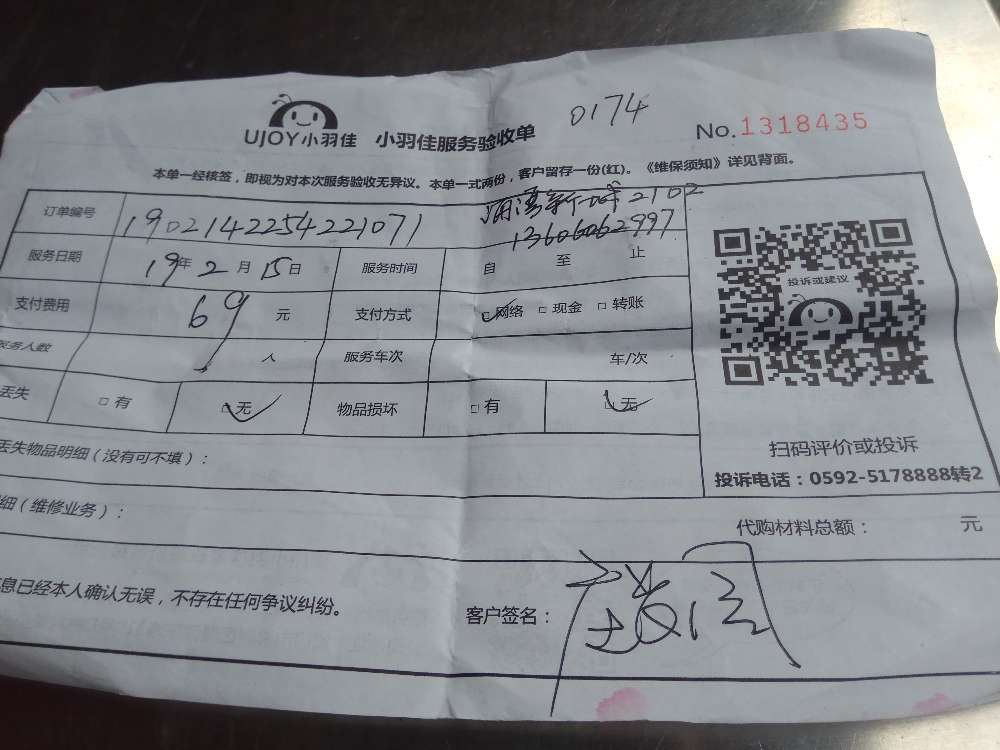 UJOY小羽佳 小羽佳服务验收单 0174 No.1318435
本单一经核签，即视为对本次服务验收无异议。本单一式两份，客户留存一份(红)。《维保须知》详见背面。
订单编号 1902142254221071 2102
13606062997
服务日期 19年2月15日 服务时间 自 至 止
支付费用 69元 支付方式 □网络 □现金 □转账
人数 人 服务车次 车/次
丢失 □有 □无 物品损坏 □有 □无
投诉或建议
丢失物品明细（没有可不填）：
扫码评价或投诉
投诉电话：0592-5178888转2
细（维修业务）：
代购材料总额： 元
息已经本人确认无误，不存在任何争议纠纷。
客户签名：